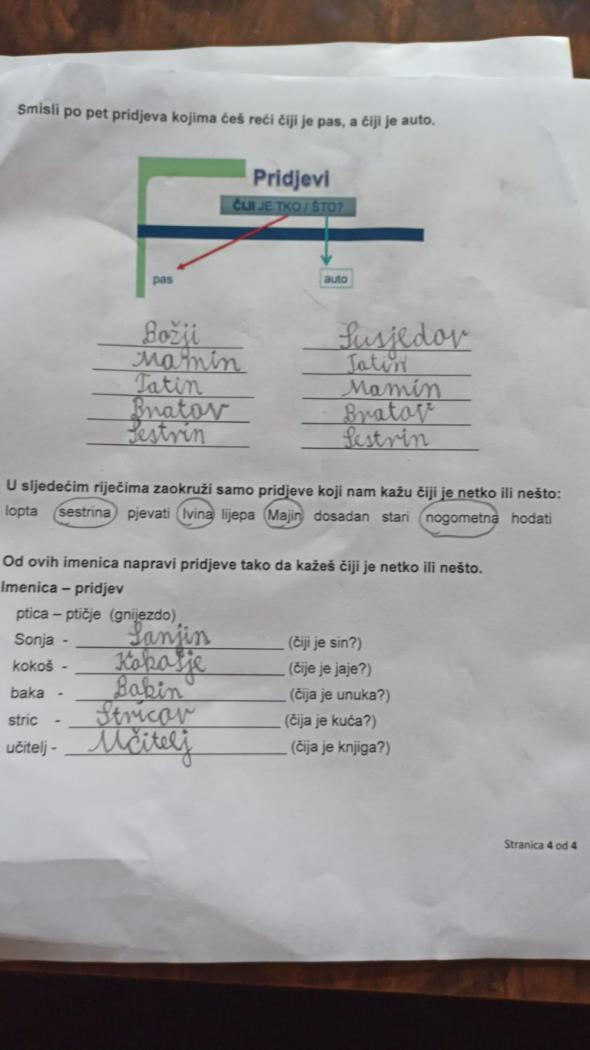 Smisli po pet pridjeva kojima ćeš reći čiji je pas, a čiji je auto.
Pridjevi
ČIJI JE TKO / ŠTO?
pas auto
Božji Susjedov
Mamin Tatin
Tatin Mamin
Bratov Bratov
Sestrin Sestrin
U sljedećim riječima zaokruži samo pridjeve koji nam kažu čiji je netko ili nešto:
lopta sestrina pjevati Ivina lijepa Majin dosadan stari nogometna hodati
Od ovih imenica napravi pridjeve tako da kažeš čiji je netko ili nešto.
Imenica – pridjev
ptica – ptičje (gnijezdo)
Sonja - Sanjin (čiji je sin?)
kokoš - Kokošje (čije je jaje?)
baka - Bakin (čija je unuka?)
stric - Stricov (čija je kuća?)
učitelj - Učitelj (čija je knjiga?)
Stranica 4 od 4